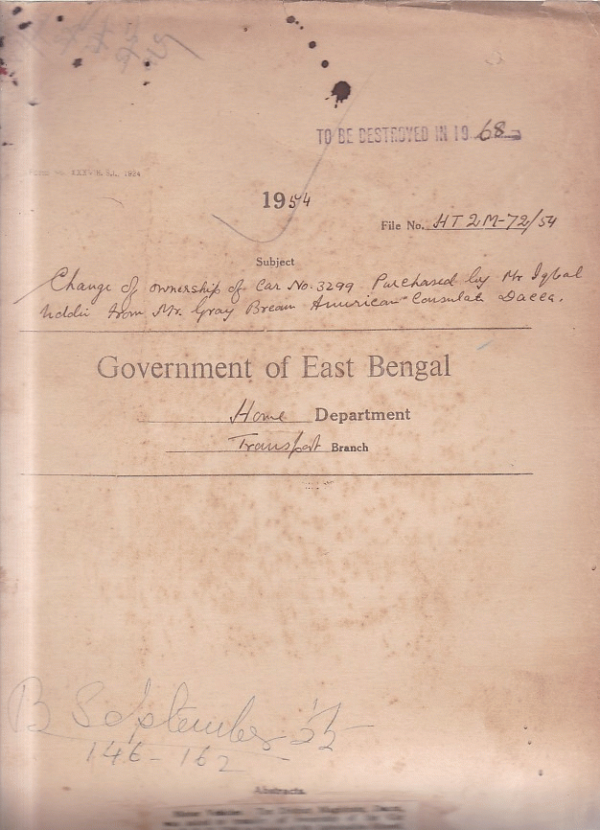 TO BE DESTROYED IN 1968
1954
File No. HT2M-72/54
Subject
Change of ownership of Car No. 3299 Purchased by Mr Iqbal
Uddin from Mr. Gray Bream American Consulate Dacca.
Government of East Bengal
Home Department
Transport Branch
B September '55
146-162
Abstracts.